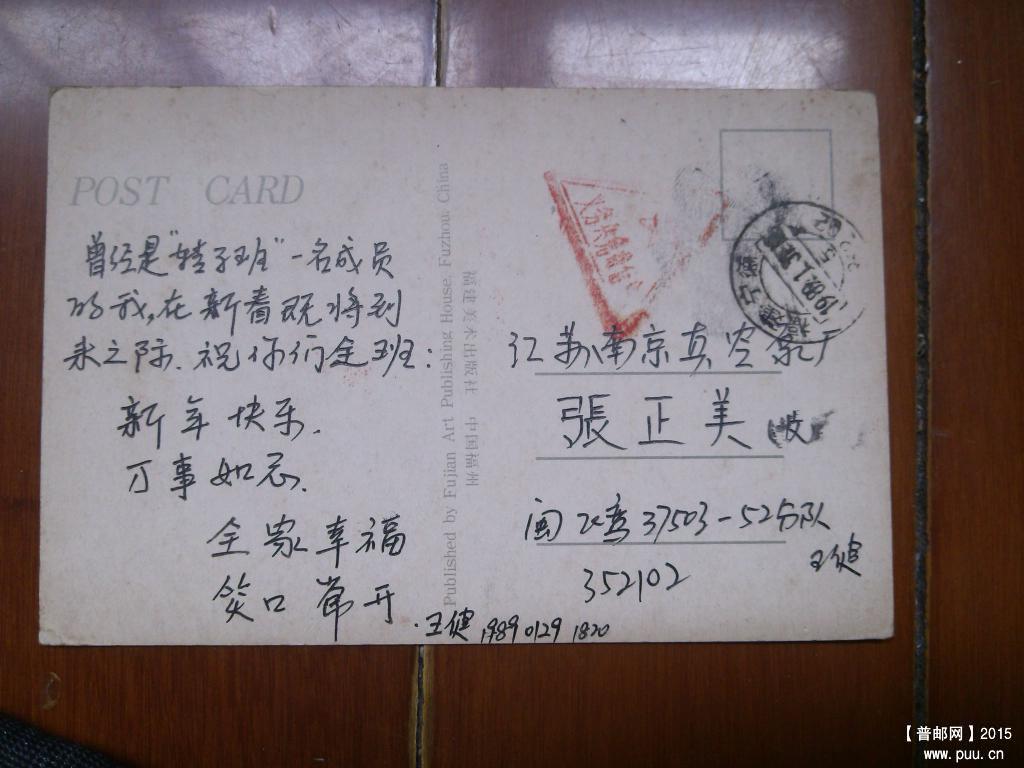 POST CARD
曾经是"娃子班"一名成员
的我,在新春既将到
来之际.祝你们全班:
新年快乐.
万事如意.
全家幸福
笑口常开
·王健 19890129 1820
Published by Fujian Art Publishing House. Fuzhou. China
福建美术出版社 中国福州
义务兵免费信件
江苏南京真空泵厂
張正美 收
闽 37503-52分队
王健
352102
【普邮网】2015
www.puu.cn